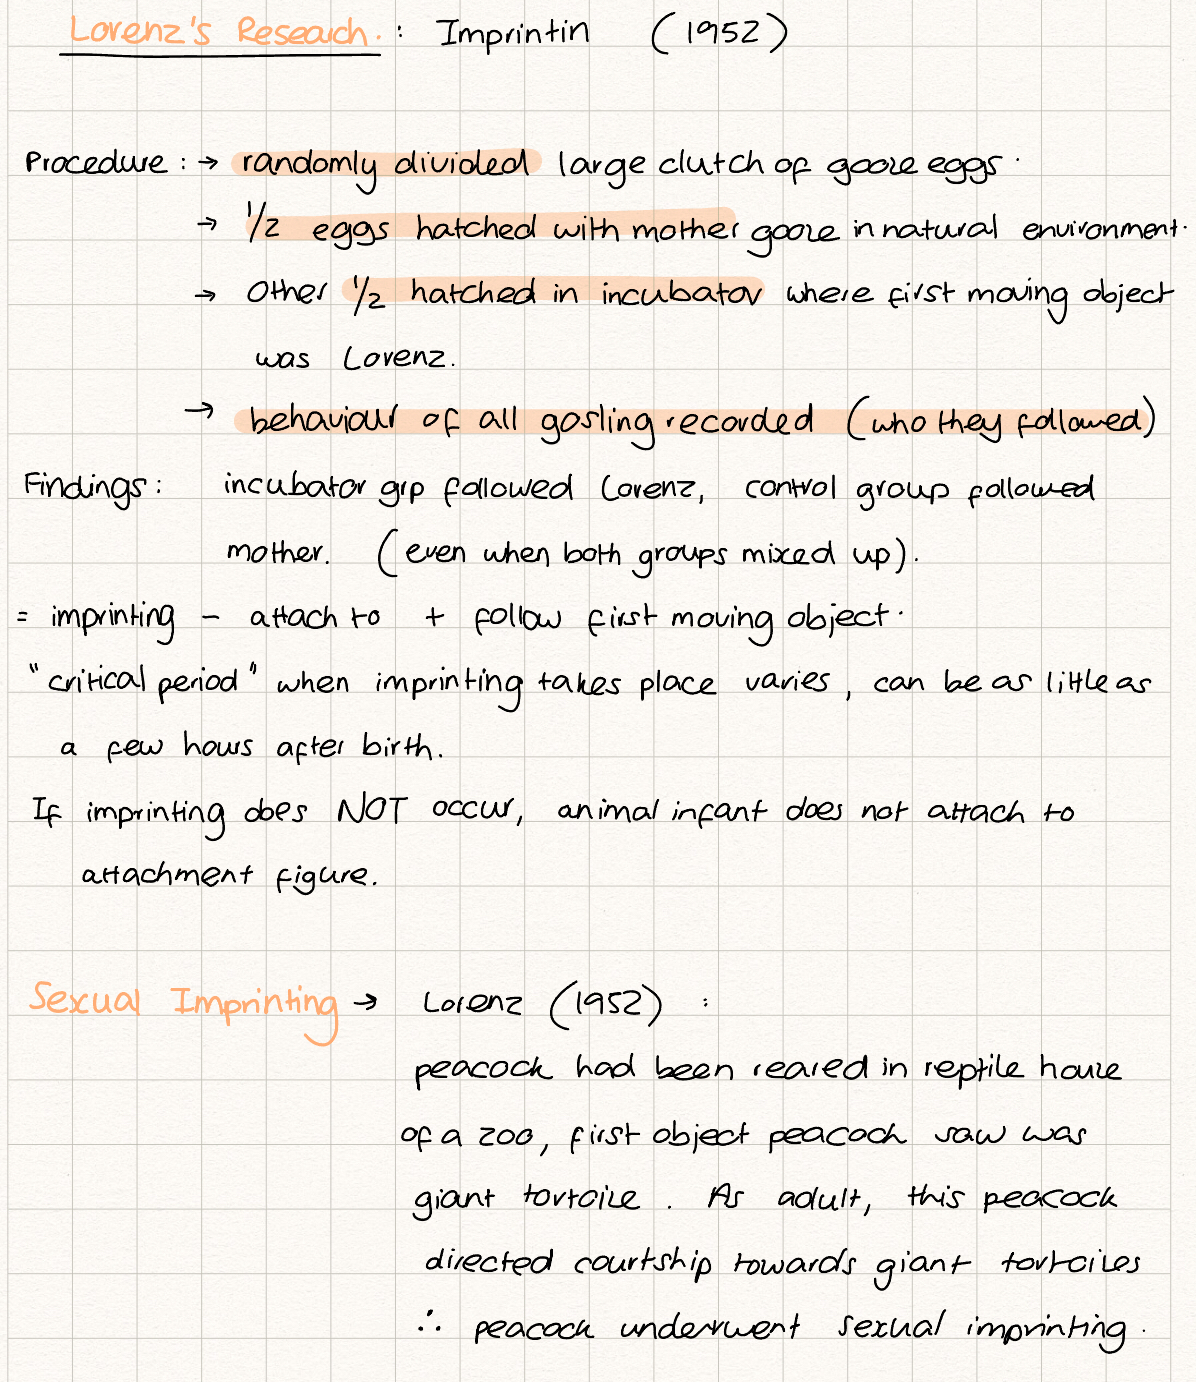 Lorenz's Reseach. : Imprintin (1952)
Procedure : → randomly divided large clutch of goose eggs.
→ 1/2 eggs hatched with mother goose in natural environment.
→ Other 1/2 hatched in incubator where first moving object
was Lorenz.
→ behaviour of all gosling recorded (who they followed)
Findings : incubator grp followed Lorenz, control group followed
mother. (even when both groups mixed up).
= imprinting - attach to + follow first moving object.
"critical period" when imprinting takes place varies, can be as little as
a few hours after birth.
If imprinting does NOT occur, animal infant does not attach to
attachment figure.
Sexual Imprinting → Lorenz (1952) :
peacock had been reared in reptile house
of a zoo, first object peacock saw was
giant tortoise. As adult, this peacock
directed courtship towards giant tortoises
∴ peacock underwent sexual imprinting.